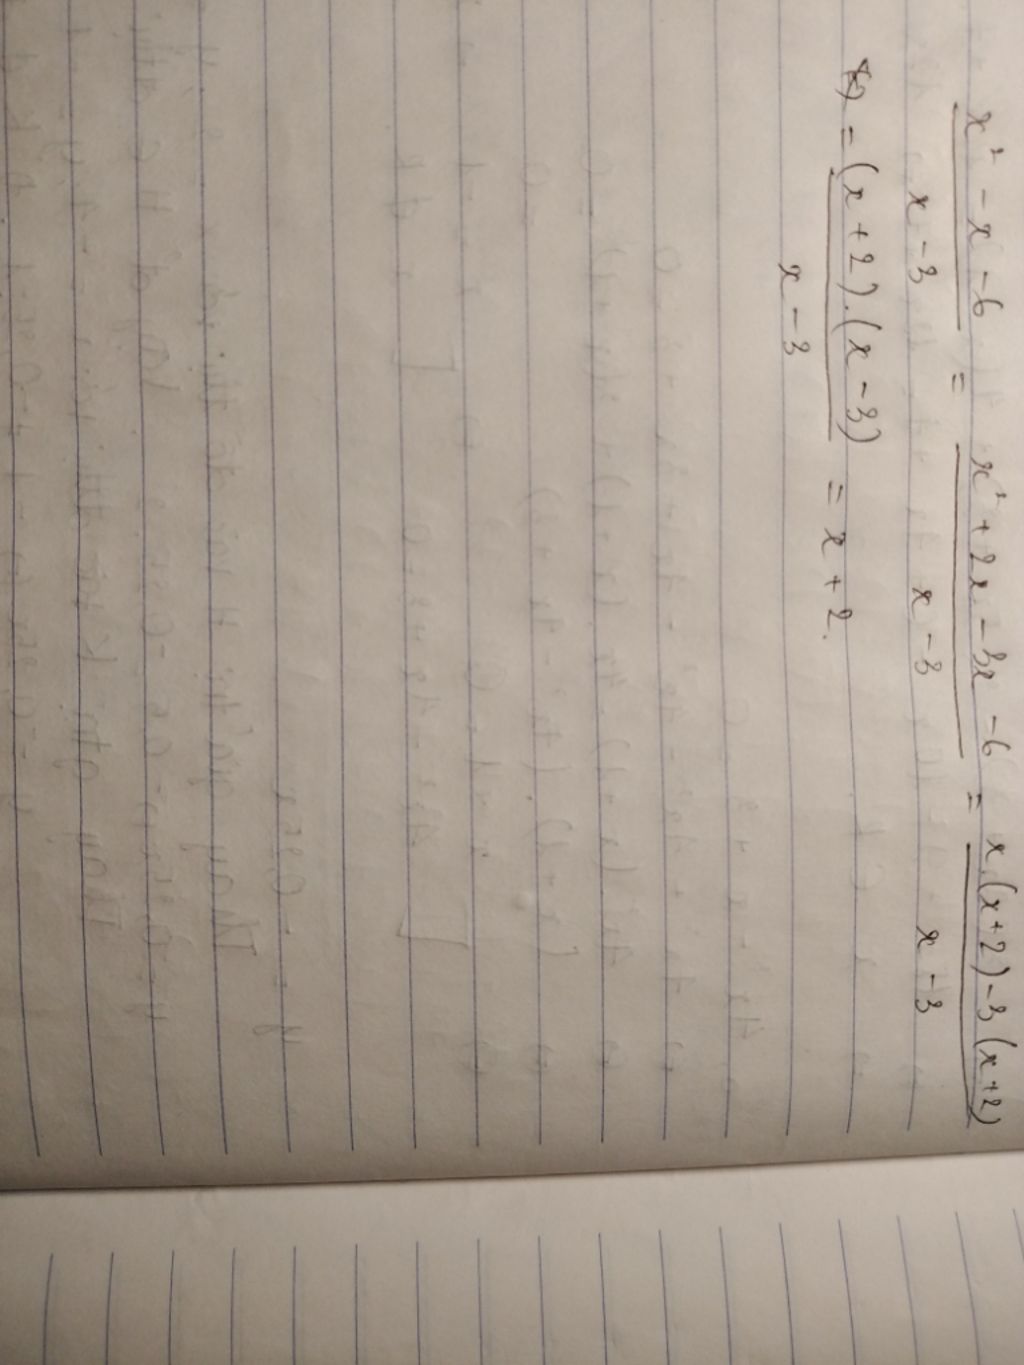 x² - x - 6 / x - 3 = x² + 2x - 3x - 6 / x - 3 = x.(x+2) - 3(x+2) / x - 3
= (x+2).(x-3) / x - 3 = x + 2.